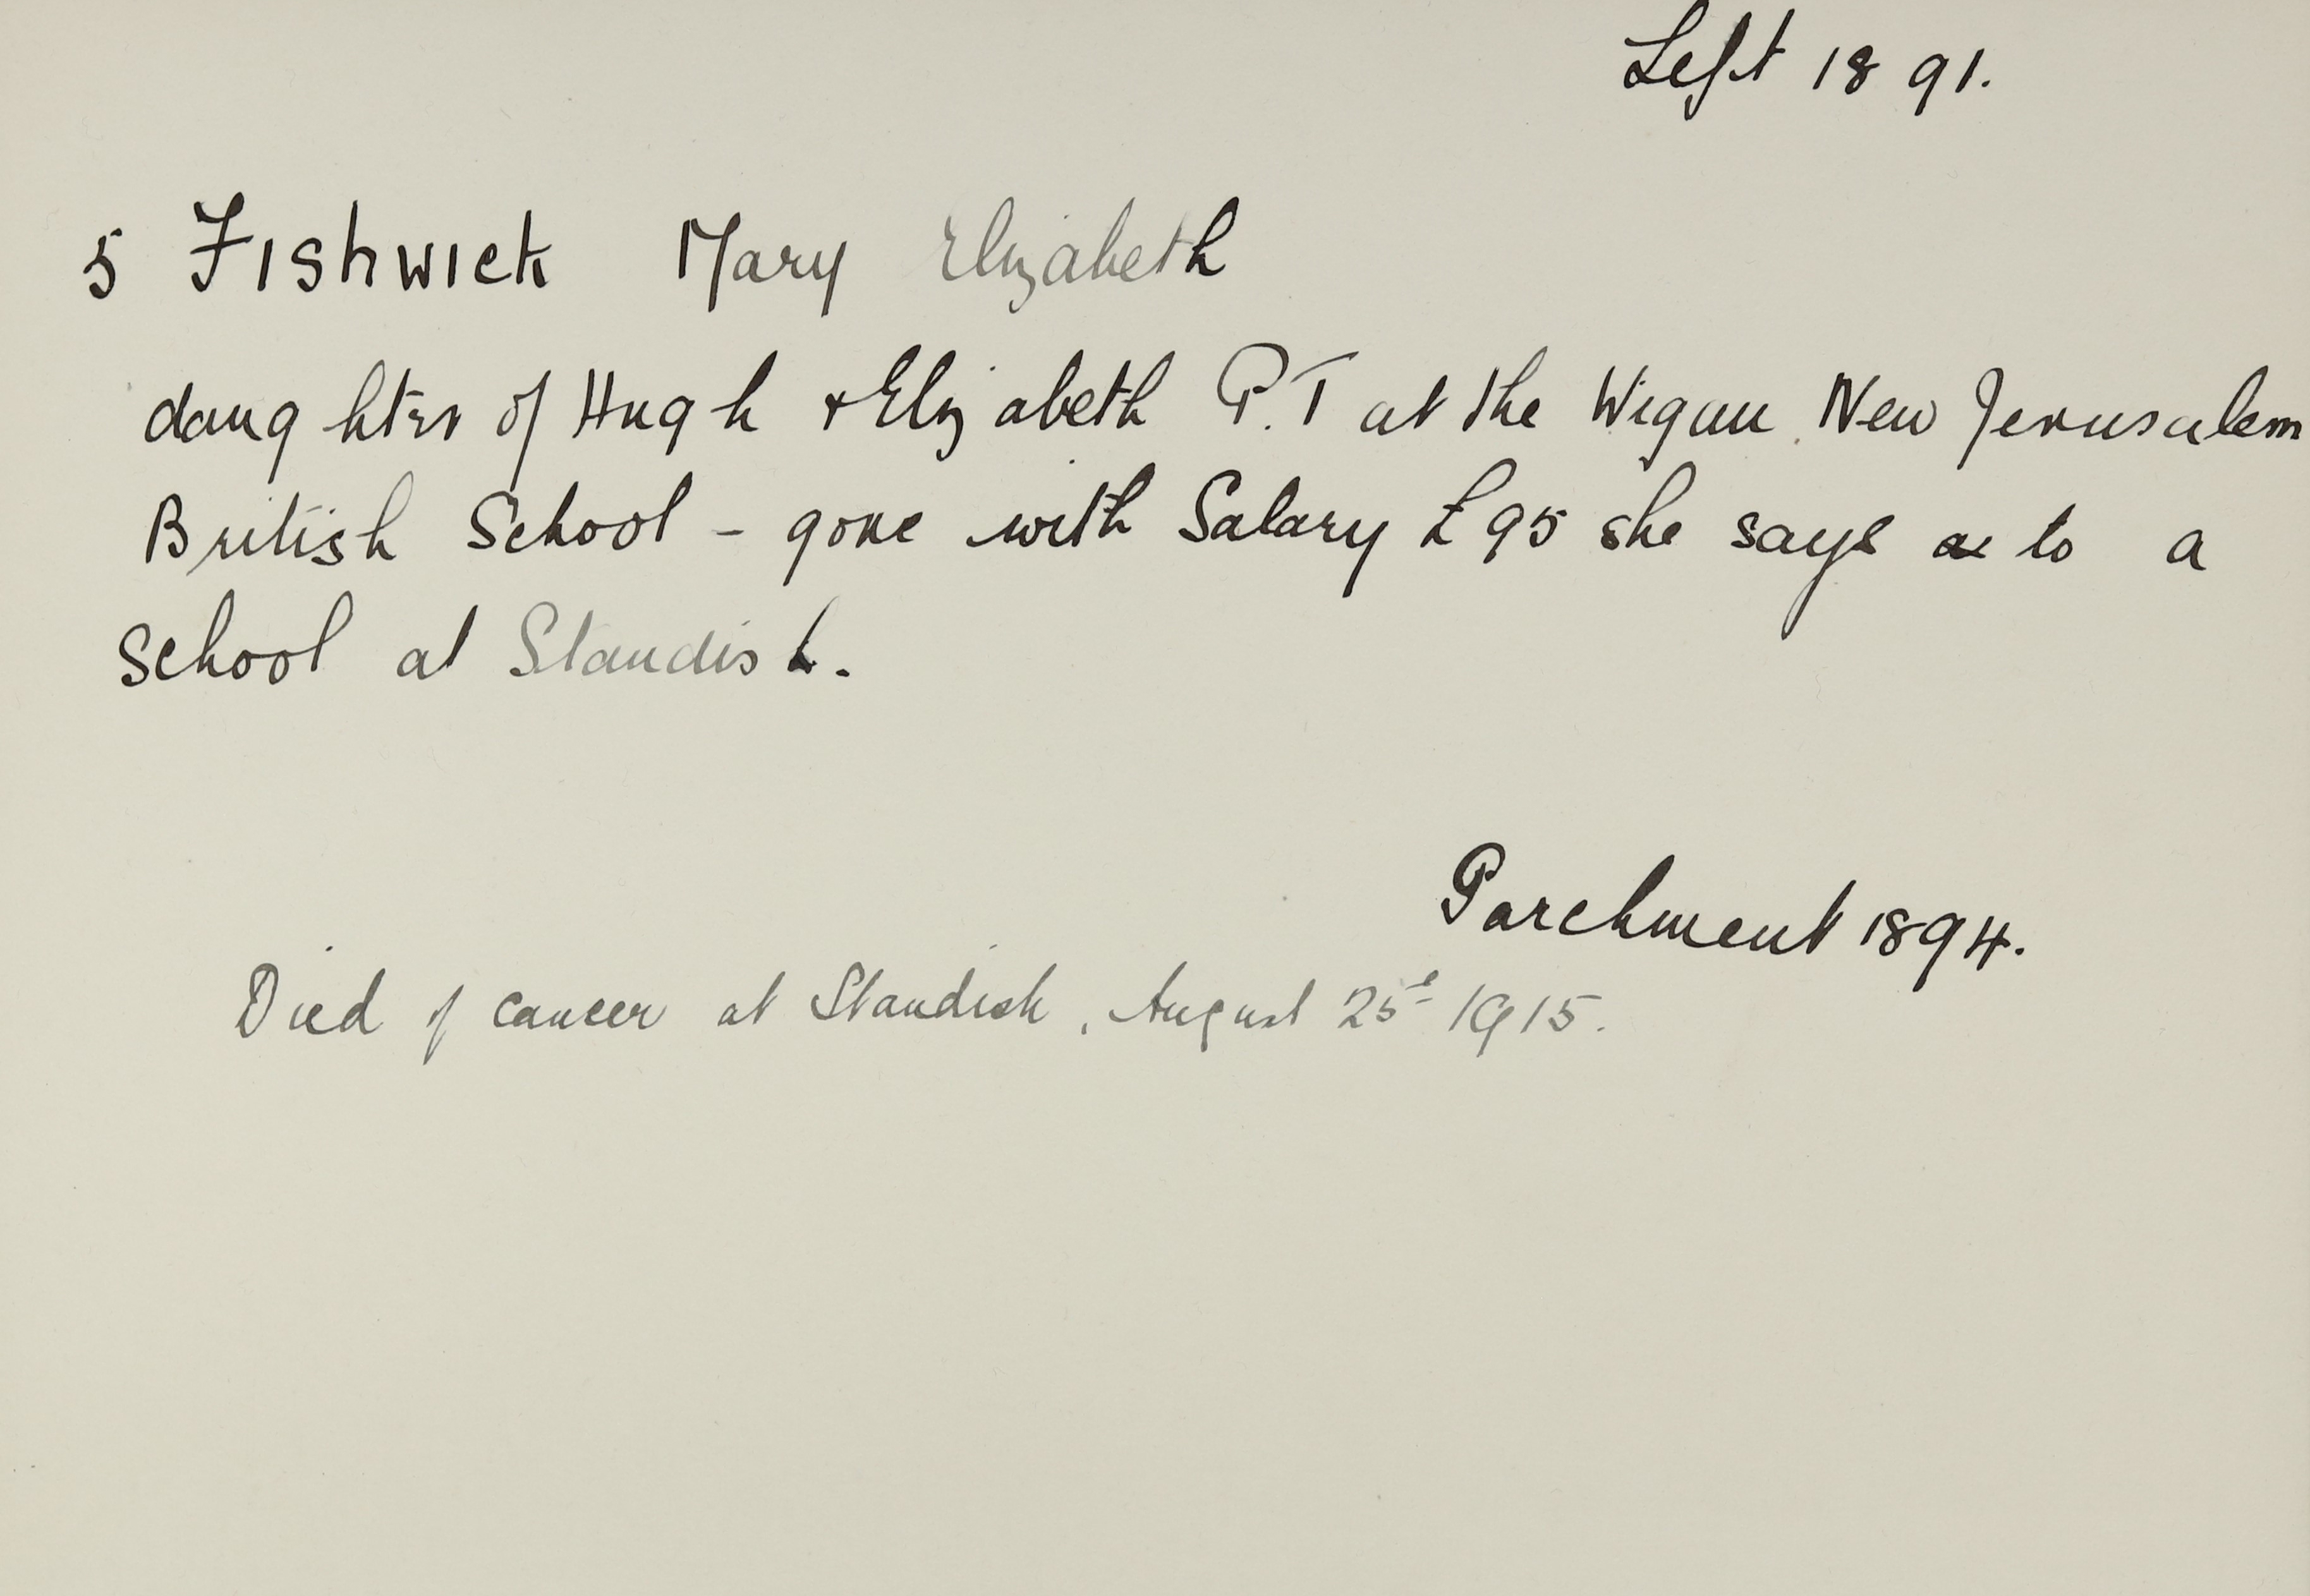 Left 1891.
5 Fishwick Mary Elizabeth
daughter of Hugh & Elizabeth P.T at the Wigan New Jerusalem
British School - gone with Salary £95 she says to a
School at Standish.
Parchment 1894.
Died of cancer at Standish, August 25th 1915.